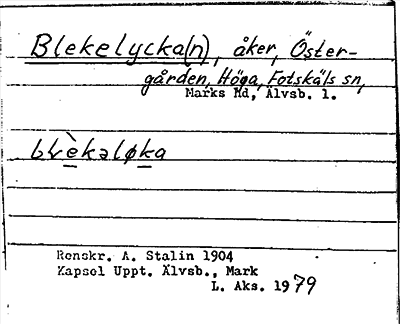 Blekelycka(n), åker, Öster-
gården, Höga, Fotskäls sn,
Marks Hd, Älvsb. l.
blèkaløka
Renskr. A. Stalin 1904
Kapsel Uppt. Älvsb., Mark
L. Aks. 1979